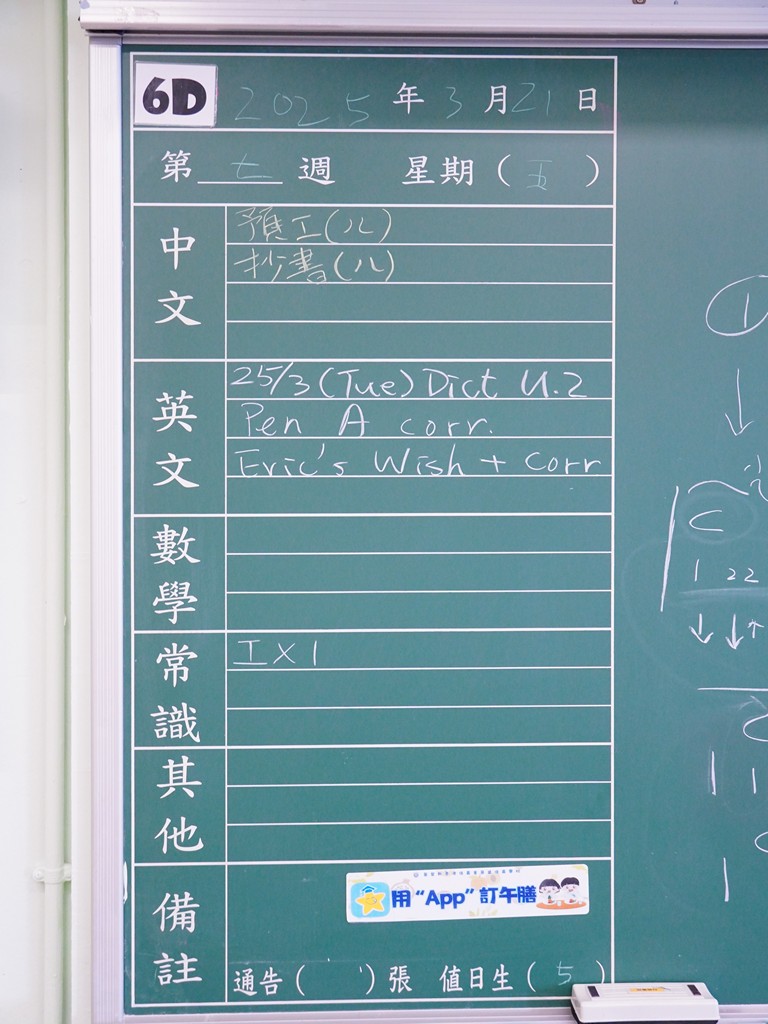 6D 2025 年 3 月 21 日
第 七 週 星期 ( 五 )
中文
預工(八)
抄書(八)
英文
25/3 (Tue) Dict U.2
Pen A corr.
Eric's Wish + corr
數學
常識
工 X 1
其他
備註
用 "App" 訂午膳
通告 ( ) 張 值日生 ( 5 )
1
C
1 22
1 1
1